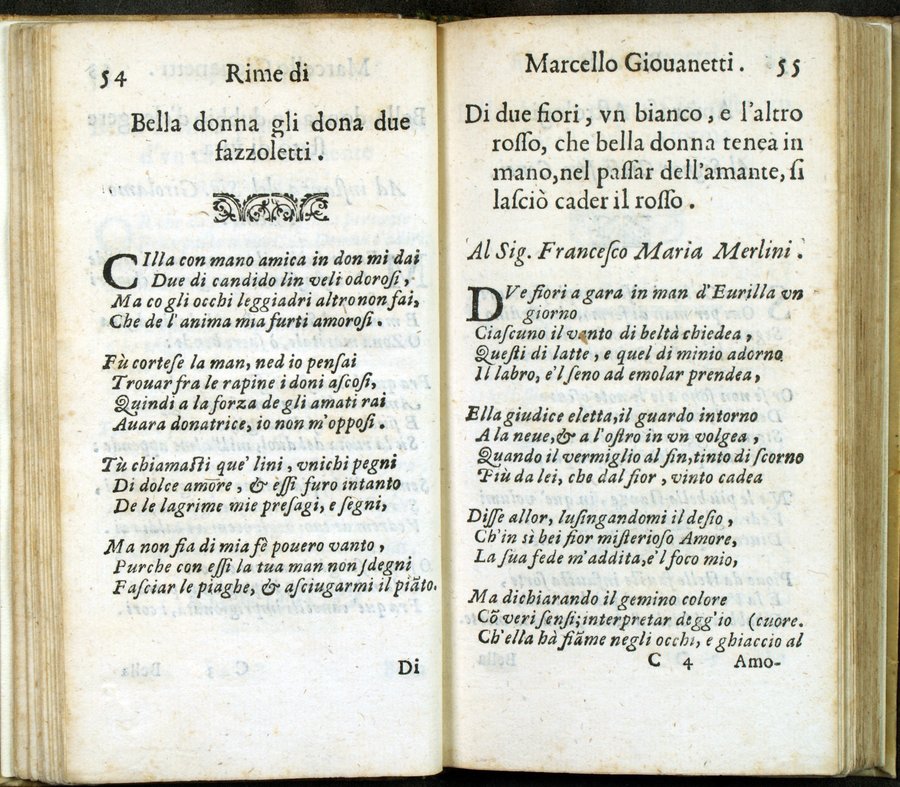 54 Rime di
Bella donna gli dona due
fazzoletti.
CIlla con mano amica in don mi dai
Due di candido lin veli odorosi,
Ma co gli occhi leggiadri altro non fai,
Che de l'anima mia furti amorosi.
Fù cortese la man, ned io pensai
Trouar fra le rapine i doni ascosi,
Quindi a la forza de gli amati rai
Auara donatrice, io non m'opposi.
Tù chiamasti que' lini, vnichi pegni
Di dolce amore, & essi furo intanto
De le lagrime mie presagi, e segni,
Ma non fia di mia fè pouero vanto,
Purche con essi la tua man non sdegni
Fasciar le piaghe, & asciugarmi il piāto.
Di
Marcello Giouanetti. 55
Di due fiori, vn bianco, e l'altro
rosso, che bella donna tenea in
mano, nel passar dell'amante, si
lasciò cader il rosso.
Al Sig. Francesco Maria Merlini.
DVe fiori a gara in man d'Eurilla vn
giorno
Ciascuno il vanto di beltà chiedea,
Questi di latte, e quel di minio adorno
Il labro, e'l seno ad emolar prendea,
Ella giudice eletta, il guardo intorno
A la neue, & a l'ostro in vn volgea,
Quando il vermiglio al fin, tinto di scorno
Più da lei, che dal fior, vinto cadea
Disse allor, lusingandomi il desio,
Ch'in sì bei fior misterioso Amore,
La sua fede m'addita, e'l foco mio,
Ma dichiarando il gemino colore
Cō veri sensi; interpretar degg'io (cuore.
Ch'ella hà fiāme negli occhi, e ghiaccio al
C 4 Amo-